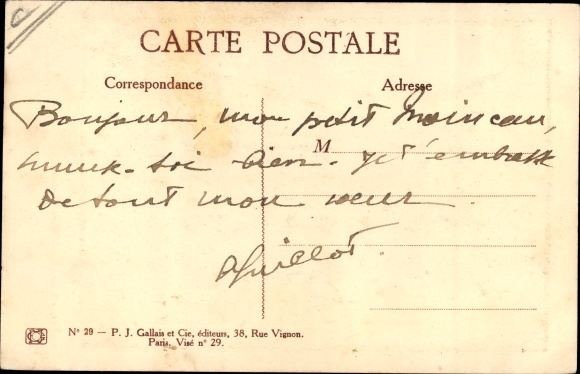 CARTE POSTALE
Correspondance
Adresse
Bonjour, mon petit moineau,
M
amuse-toi bien. Je t'embrasse
de tout mon cœur
Nº 29 — P. J. Gallais et Cie, éditeurs, 38, Rue Vignon.
Paris. Visé nº 29.